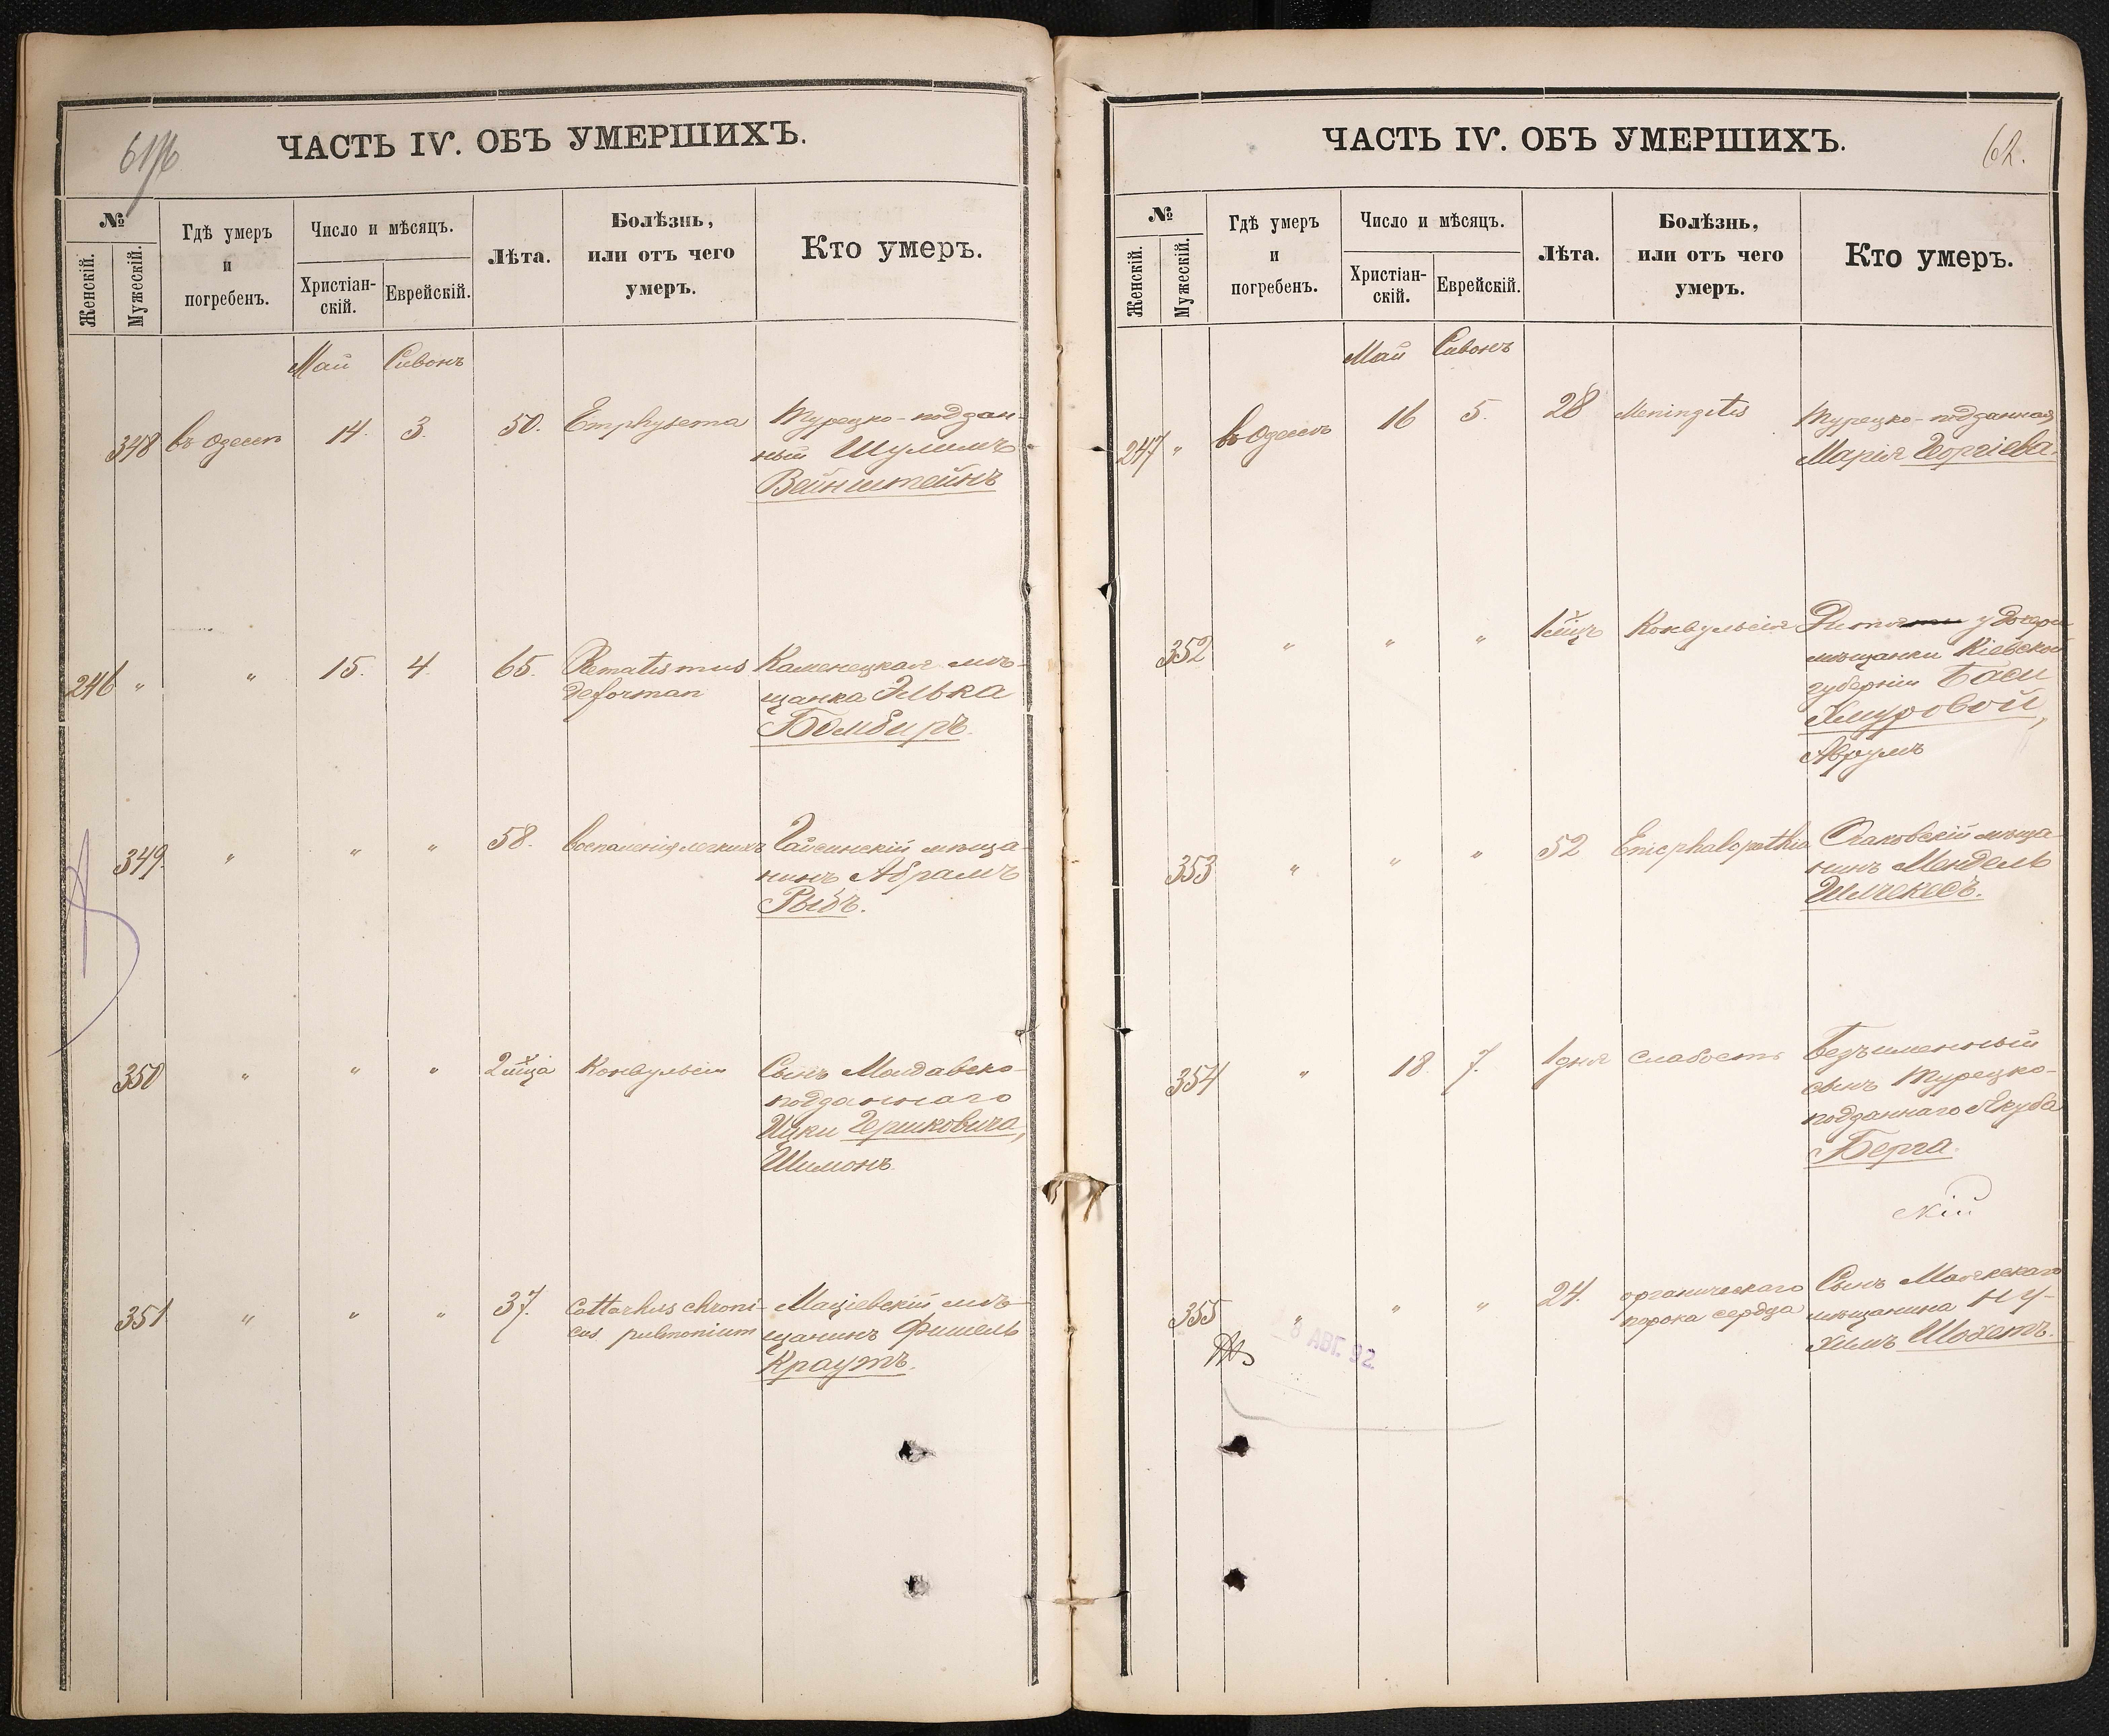 ЧАСТЬ IV. ОБЪ УМЕРШИХЪ.
№
Женскій.
Мужескій.
Гдѣ умеръ
и
погребенъ.
Число и мѣсяцъ.
Христіан-
скій.
Еврейскій.
Лѣта.
Болѣзнь,
или отъ чего
умеръ.
Кто умеръ.
Май Сивонъ
348 въ Одессѣ 14. 3. 50. Emphysema Турецко-поддан-
ный Шулимъ
Вейнштейнъ
246 " " 15. 4. 65. Rematismus Каменецкая мѣ-
deforman щанка Элька
Бомбиръ.
349. " " " 58. Воспаленія легкихъ Гайсинскій мѣща-
нинъ Абрамъ
Рывъ.
350 " " " 2 мца Конвульсіи Сынъ Молдавско-
подданнаго
Ицки Гершковича,
Шимонъ.
351 " " " 37. Cattarhus chroni- Маціевскій мѣ-
cus pulmonium щанинъ Фишель
Краутъ.
ЧАСТЬ IV. ОБЪ УМЕРШИХЪ.
62.
№
Женскій.
Мужескій.
Гдѣ умеръ
и
погребенъ.
Число и мѣсяцъ.
Христіан-
скій.
Еврейскій.
Лѣта.
Болѣзнь,
или отъ чего
умеръ.
Кто умеръ.
Май Сивонъ
247 " въ Одессѣ 16 5. 28 Meningitis Турецко-подданная
Марія Георгіева.
352 " " " 1 мцъ Конвульсія у дочери
мѣщанки Кіевской
губерніи Баси
Хмуровой,
Аврумъ
353 " " " 52 Encephalopathia Очаковскій мѣща-
нинъ Мендель
354 " 18 7. 1 дня слабость Безъименный
сынъ Турецко-
подданнаго Якуба
Берга.
355 " " " 24. органическаго Сынъ
порока сердца мѣщанина Ну-
химъ Шохетъ.
АВГ. 92